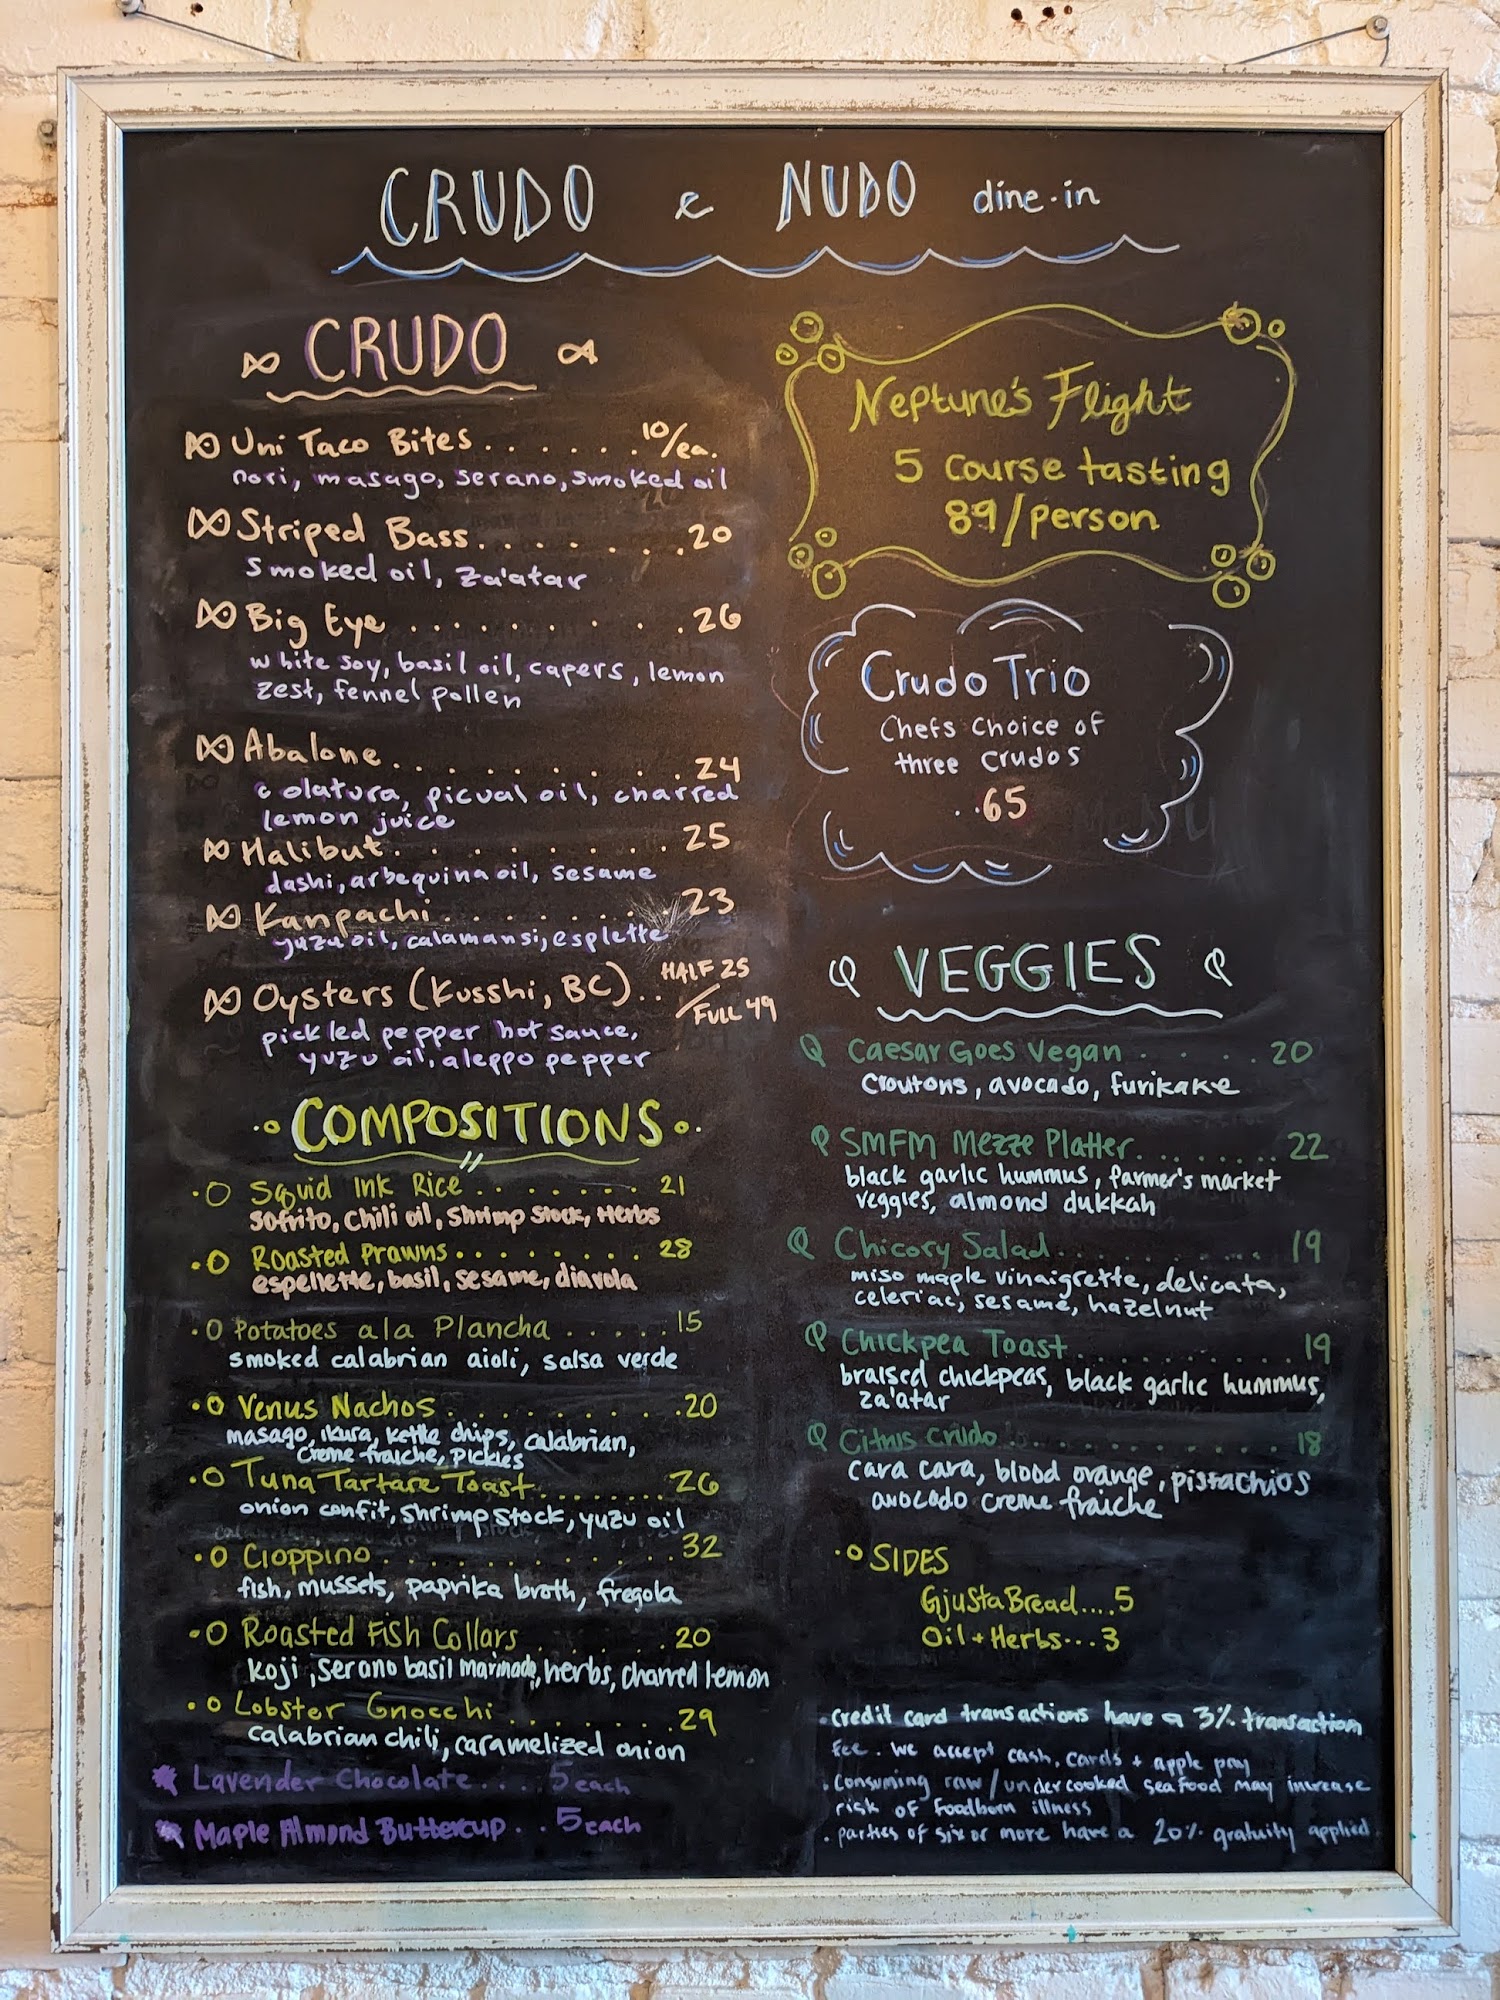 CRUDO e NUDO dine-in
CRUDO
Uni Taco Bites. . . . . . . 10/ea.
nori, masago, serano, smoked oil
Striped Bass. . . . . . . .20
smoked oil, za'atar
Big Eye . . . . . . . . . .26
white soy, basil oil, capers, lemon
zest, fennel pollen
Abalone. . . . . . . . . . . 24
colatura, picual oil, charred
lemon juice
Halibut. . . . . . . . . . . 25
dashi, arbequina oil, sesame
Kanpachi. . . . . . . . 23
yuzu oil, calamansi, esplette
Oysters (Kusshi, BC). . HALF 25
/FULL 49
pickled pepper hot sauce,
yuzu oil, aleppo pepper
COMPOSITIONS
Squid Ink Rice . . . . . . . 21
Sofrito, chili oil, shrimp stock, Herbs
Roasted Prawns. . . . . . . . 28
espellette, basil, sesame, diavola
Potatoes a la Plancha . . . . . 15
smoked calabrian aioli, salsa verde
Venus Nachos. . . . . . . . .20
masago, ikura, kettle chips, calabrian,
creme fraiche, pickles
Tuna Tartare Toast. . . . . . . 26
onion confit, shrimp stock, yuzu oil
Cioppino. . . . . . . . . . . .32
fish, mussels, paprika broth, fregola
Roasted Fish Collars . . . . . 20
koji, serano basil marinade, herbs, charred lemon
Lobster Gnocchi . . . . . . . 29
calabrian chili, caramelized onion
Lavender Chocolate . . . . 5 each
Maple Almond Buttercup . . 5 each
Neptune's Flight
5 course tasting
89/person
Crudo Trio
Chefs Choice of
three Crudos
. .65
VEGGIES
Caesar Goes Vegan . . . . 20
croutons, avocado, furikake
SMFM Mezze Platter. . . . . . . . 22
black garlic hummus, farmer's market
veggies, almond dukkah
Chicory Salad. . . . . . . . . . . 19
miso maple vinaigrette, delicata,
celeriac, sesame, hazelnut
Chickpea Toast . . . . . . . . . . 19
braised chickpeas, black garlic hummus,
za'atar
Citrus Crudo . . . . . . . . . . . 18
cara cara, blood orange, pistachios
avocado creme fraiche
SIDES
Gjusta Bread....5
Oil + Herbs...3
. Credit card transactions have a 3% transaction
Fee. We accept cash, cards + apple pay
. Consuming raw/undercooked seafood may increase
risk of foodborn illness
. parties of six or more have a 20% gratuity applied